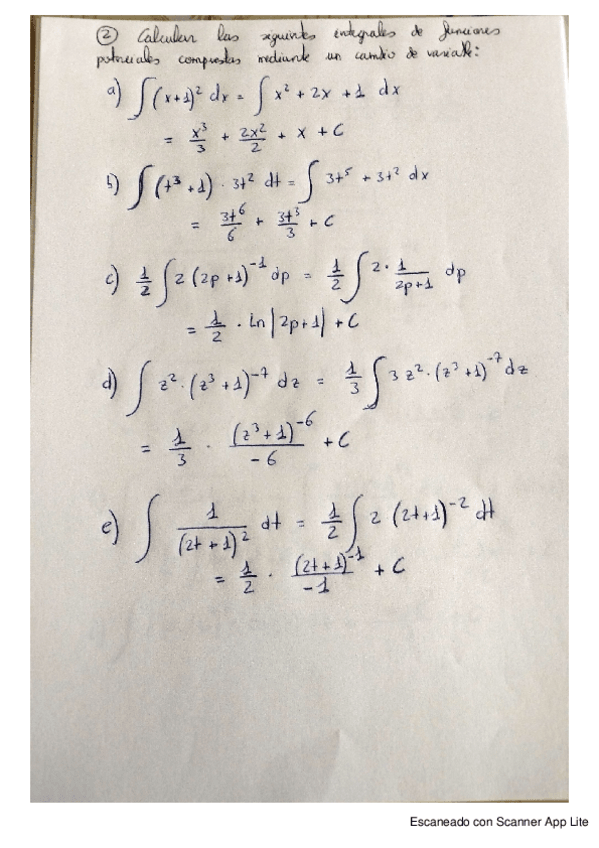 ② Calcular las siguientes integrales de funciones
potenciales compuestas mediante un cambio de variable:
a) ∫(x+1)² dx = ∫ x² + 2x + 1 dx
= x³/3 + 2x²/2 + x + C
b) ∫(t³+1) · 3t² dt = ∫ 3t⁵ + 3t² dx
= 3t⁶/6 + 3t³/3 + C
c) 1/2 ∫ 2(2p+1)⁻¹ dp = 1/2 ∫ 2 · 1/(2p+1) dp
= 1/2 · ln|2p+1| + C
d) ∫ z² · (z³+1)⁻⁷ dz = 1/3 ∫ 3z² · (z³+1)⁻⁷ dz
= 1/3 · (z³+1)⁻⁶/-6 + C
e) ∫ 1/(2t+1)² dt = 1/2 ∫ 2(2t+1)⁻² dt
= 1/2 · (2t+1)⁻¹/-1 + C
Escaneado con Scanner App Lite